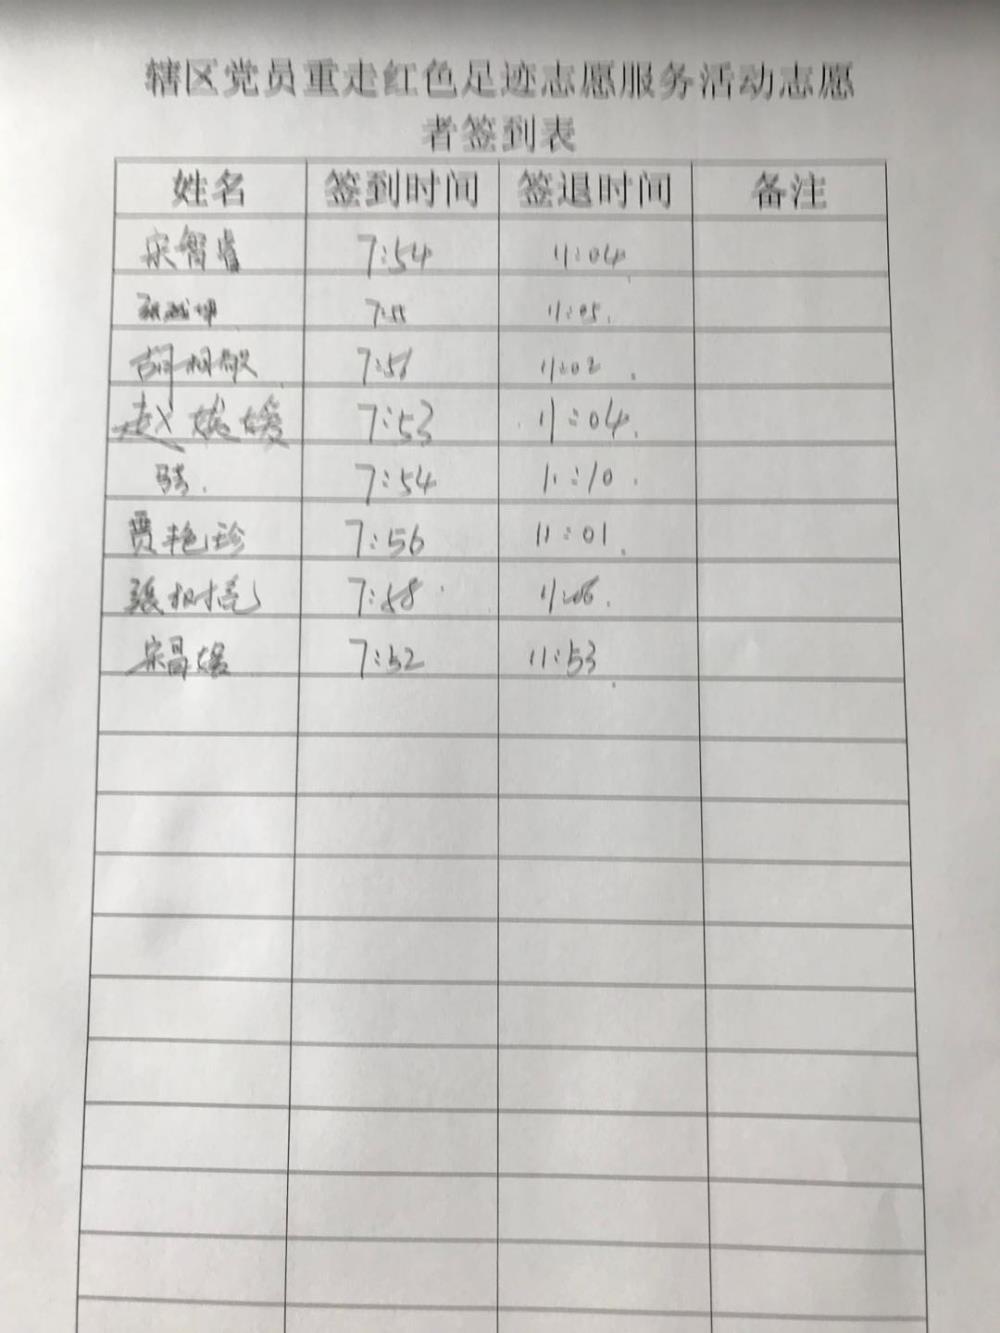 辖区党员重走红色足迹志愿服务活动志愿
者签到表
姓名 签到时间 签退时间 备注
宋智睿 7:54 11:04
7:55 11:05
胡相敏 7:56 11:02
赵媛媛 7:53 11:04
7:54 11:10
贾艳珍 7:56 11:01
張相亮 7:58 11:06
宋昌媛 7:52 11:53